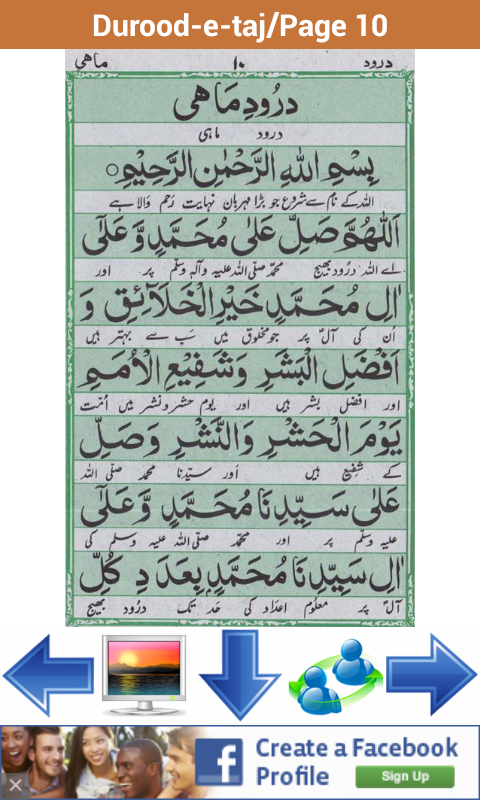 Durood-e-taj/Page 10
درود ۱۰ ماهی
درُودِ مَاهی
درود ماہی
بِسْمِ اللهِ الرَّحْمٰنِ الرَّحِيْمِ○
اللہ کے نام سے شروع جو بڑا مہربان نہایت رحم والا ہے
اَللّٰهُمَّ صَلِّ عَلٰى مُحَمَّدٍ وَّ عَلٰٓى
اے اللہ درُود بھیج محمّد صلّی اللہ علیہ وآلہٖ وسلّم پر اور
اٰلِ مُحَمَّدٍ خَيْرِ الْخَلَآئِقِ وَ
اُن کی آلؑ پر جو مخلوق میں سَب سے بہتر ہیں
اَفْضَلِ الْبَشَرِ وَشَفِيْعِ الْاُمَمِ
اور افضل بشر ہیں اور یوم حشر و نشر میں اُمّت
يَوْمَ الْحَشْرِ وَالنَّشْرِ وَصَلِّ
کے شفیع ہیں اور سیّدنا محمّد صلّی اللہ
عَلٰى سَيِّدِنَا مُحَمَّدٍ وَّعَلٰٓى
علیہ وسلّم پر اور محمّد صلّی اللہ علیہ وسلم کی
اٰلِ سَيِّدِنَا مُحَمَّدٍ بِعَدَدِ كُلِّ
آلؑ پر معلوم اعداد کی حَد تک درُود بھیج
Create a Facebook
Profile
Sign Up